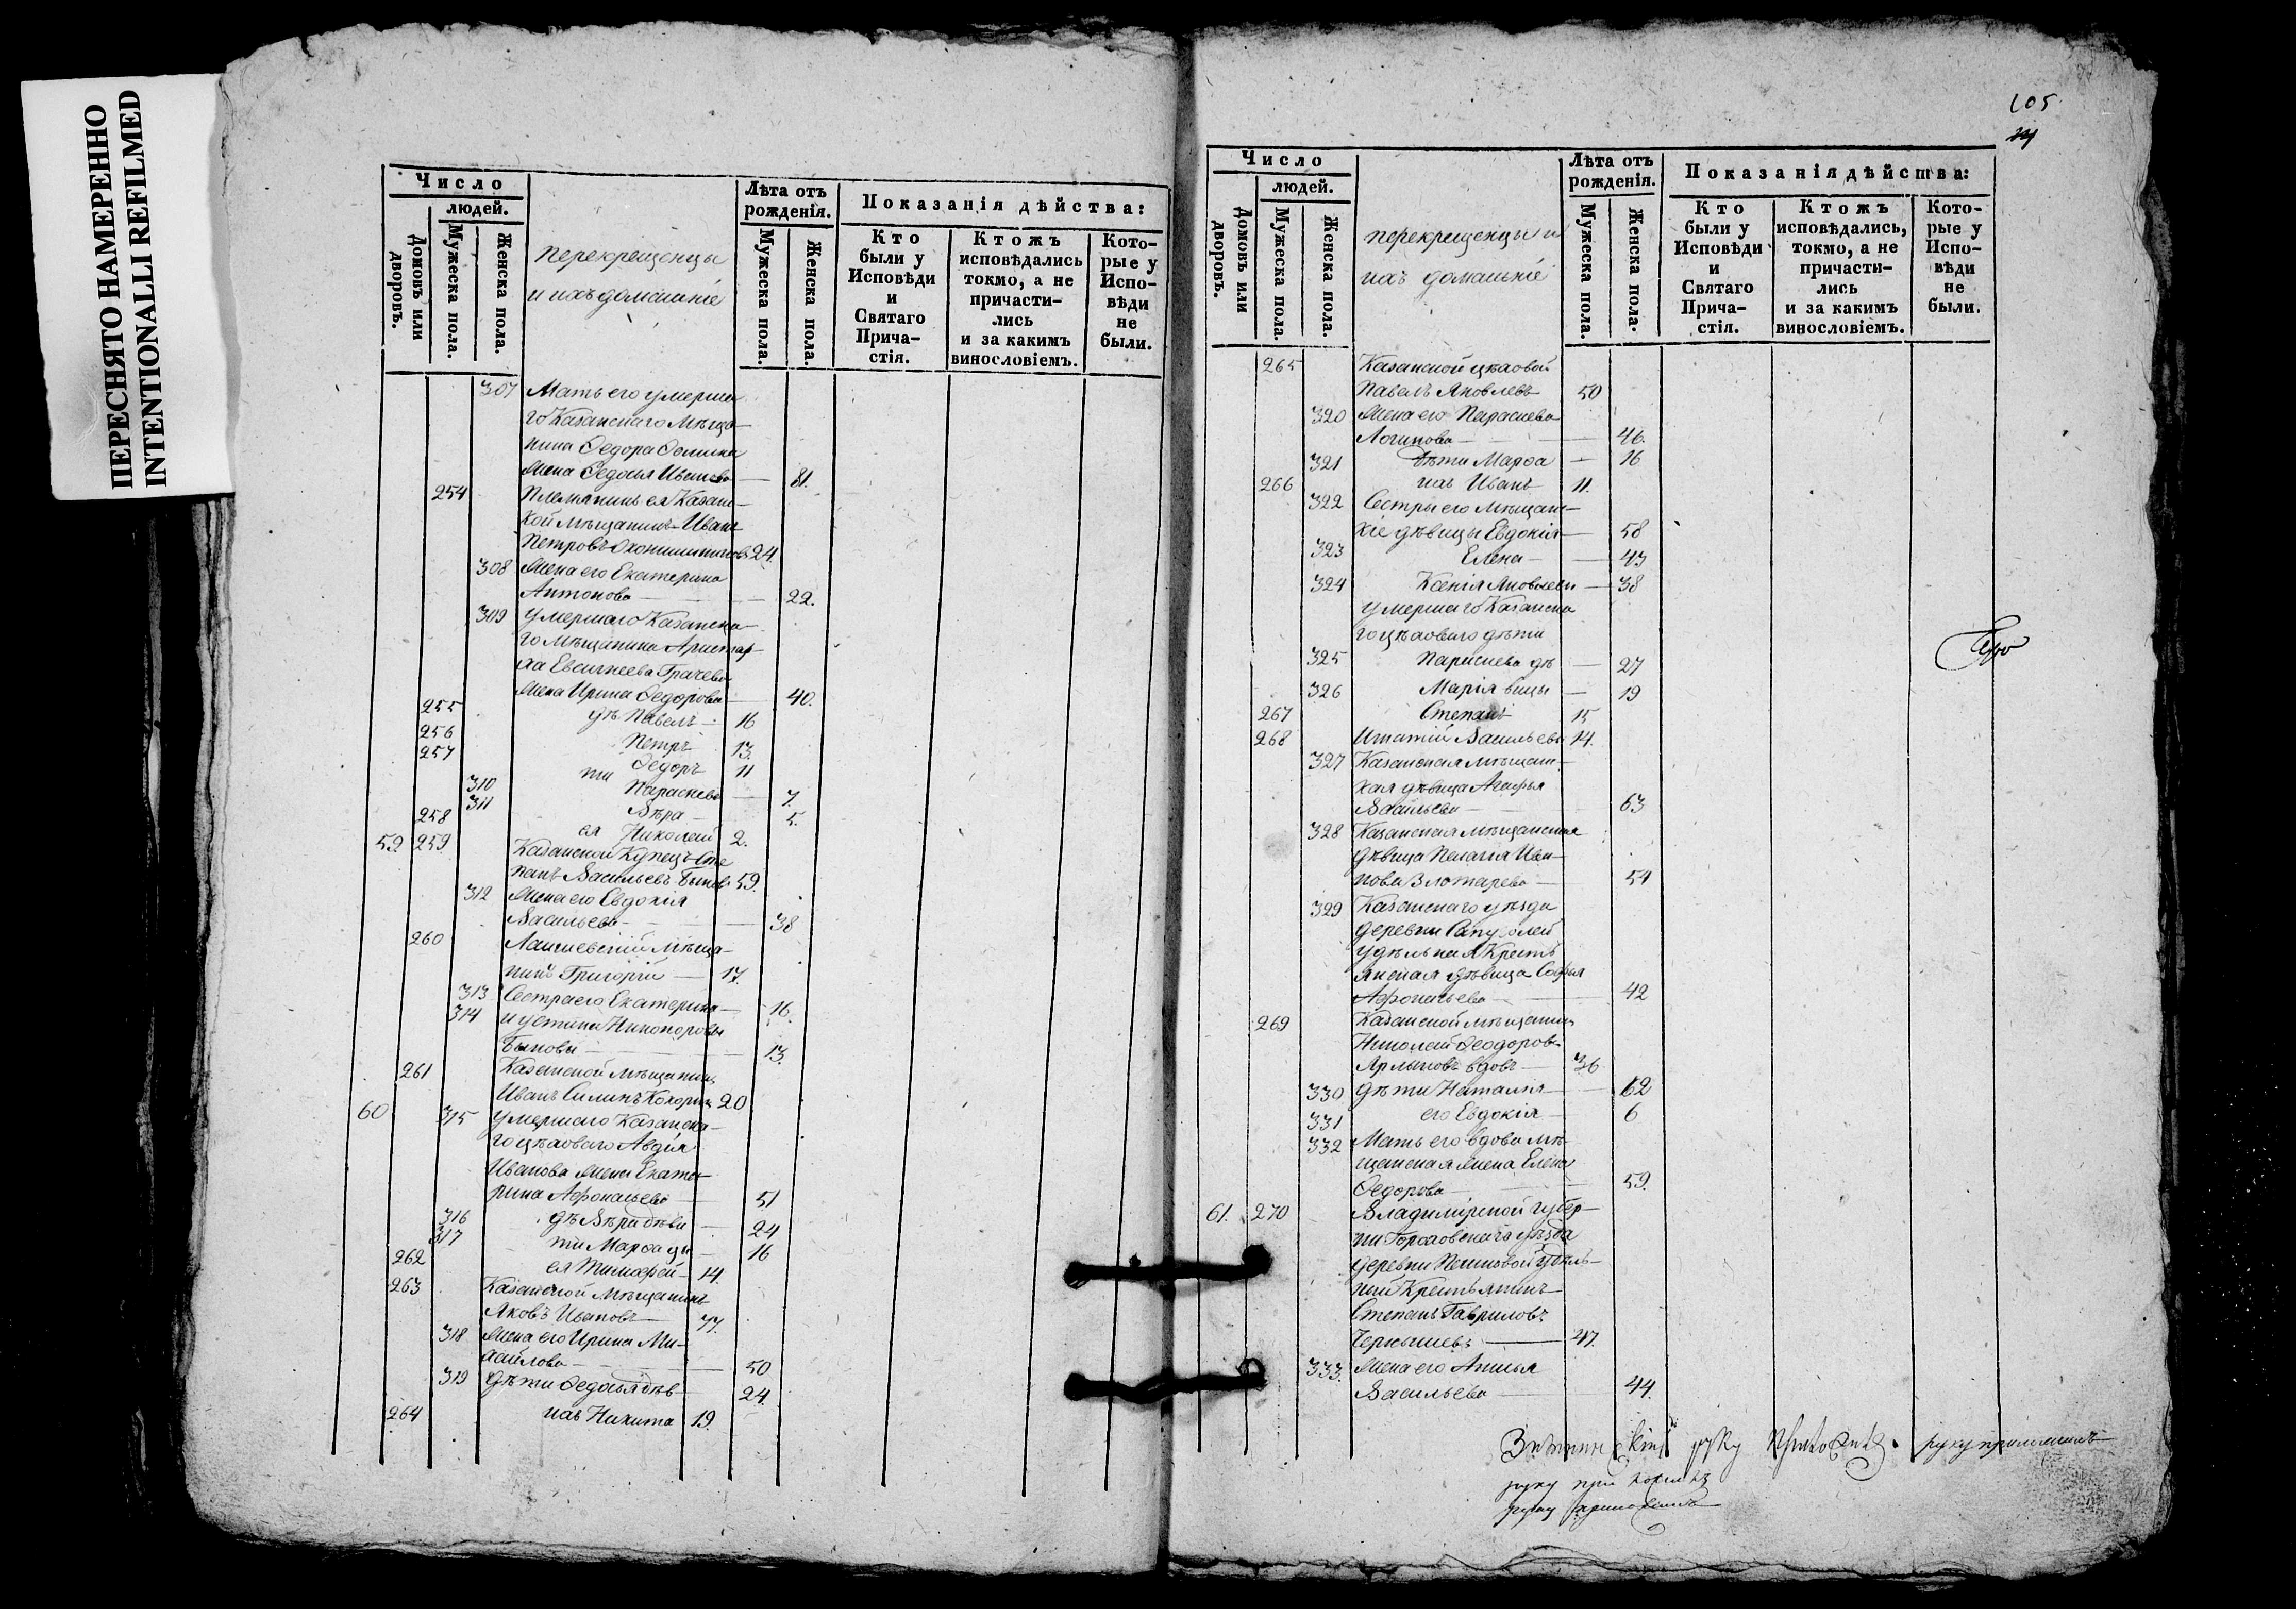 ПЕРЕСНЯТО НАМЕРЕННО
INTENTIONALLI REFILMED
Число
людей.
Домовъ или дворовъ.
Мужеска пола.
Женска пола.
перекрещенцы
и ихъ домашніе
Лѣта отъ рожденія.
Мужеска пола.
Женска пола.
Показанія дѣйства:
Кто были у Исповѣди и Святаго Прича-стія.
Ктожъ исповѣдались токмо, а не причасти-лись и за какимъ винословіемъ.
Кото-рые у Испо-вѣди не были.
307 Мать его умерша
го Казанскаго Мѣща
нина Ѳедора Осипова
жена Ѳедосья Иванова — 81.
254 Племянникъ ея Казан-
кой мѣщанинъ Иванъ
Петровъ 24.
308 Жена его Екатерина
Антонова — 22.
309 Умершаго Казанска
го мѣщанина Аристар-
ха Евсигнеева Грачева
жена Ирина Ѳедорова — 40.
255 дѣ Павелъ — 16
256 Петръ 13.
257 ти Ѳедоръ 11
310 Параскева — 7.
311 Вѣра — 5.
258 ея Николай 2.
59 259. Казанской Купецъ Сте
панъ Васильевъ Быковъ 59.
312 Жена его Евдокія
Васильева — 38
260 Лаишевскій мѣща-
нинъ Григорій — 17.
313 Сестра его Екатерина — 16.
314 и Устинья Никопоровы
Быковы — 13.
261 Казанской мѣщанинъ
Иванъ Силинъ Кокоринъ 20
60 315 умершаго Казанска-
го цѣховаго Авдія
Иванова жена Екате-
рина Аѳонасьева — 51
316 дѣ Вѣра дѣви — 24
317 ти Марѳа цы — 16
262 ея Тимоѳей — 14.
263 Казанской Мѣщанинъ
Яковъ Ивановъ — 77.
318 Жена его Ирина Ми-
хайлова — 50
319 Дѣти Ѳедосья дѣв 24.
264 ихъ Никита 19.
105
Число
людей.
Домовъ или дворовъ.
Мужеска пола.
Женска пола.
перекрещенцы и
ихъ домашніе
Лѣта отъ рожденія.
Мужеска пола.
Женска пола.
Показанія дѣйства:
Кто были у Исповѣди и Святаго Прича-стія.
Ктожъ исповѣдались, токмо, а не причасти-лись и за какимъ винословіемъ.
Кото-рые у Испо-вѣди не были.
265 Казанской цѣховой
Павелъ Яковлевъ 50
320 Жена его Параскева
Логинова — 46.
321 дѣти Марѳа — 16
266 ихъ Иванъ 11.
322 Сестры его Мѣщанс-
кіе дѣвицы Евдокія — 58
323 Елена — 43
324 Ксенія Яковлевы — 38
умершаго Казанска
го цѣховаго дѣти
325 Параскева дѣ — 27
326 Марія вицы — 19
267 Степанъ 15
268 Игнатій Васильевы 14.
327 Казанская мѣщан-
кая дѣвица Агафья
Васильева — 63
328 Казанская мѣщанская
дѣвица Пелагея Ива-
нова Злотарева — 54
329 Казанскаго уѣзда
деревни
удѣльная Кресть
янская дѣвица Софья
Аѳонасьева — 42
269 Казанской мѣщанинъ
Николай Ѳеодоровъ
Ярлыковъ вдовъ — 36
330 Дѣти Наталья — 12
331 его Евдокія — 6
332 Мать его вдова мѣ-
щанская жена Елена
Ѳедорова — 59.
61. 270 Владимірской губер-
ни Гороховскаго уѣзда
деревни удѣль-
ный Крестьянинъ
Степанъ Гавриловъ
Чернышевъ — 47.
333. Жена его Анисья
Васильева 44.
руку приложилъ
руку приложилъ
руку приложилъ